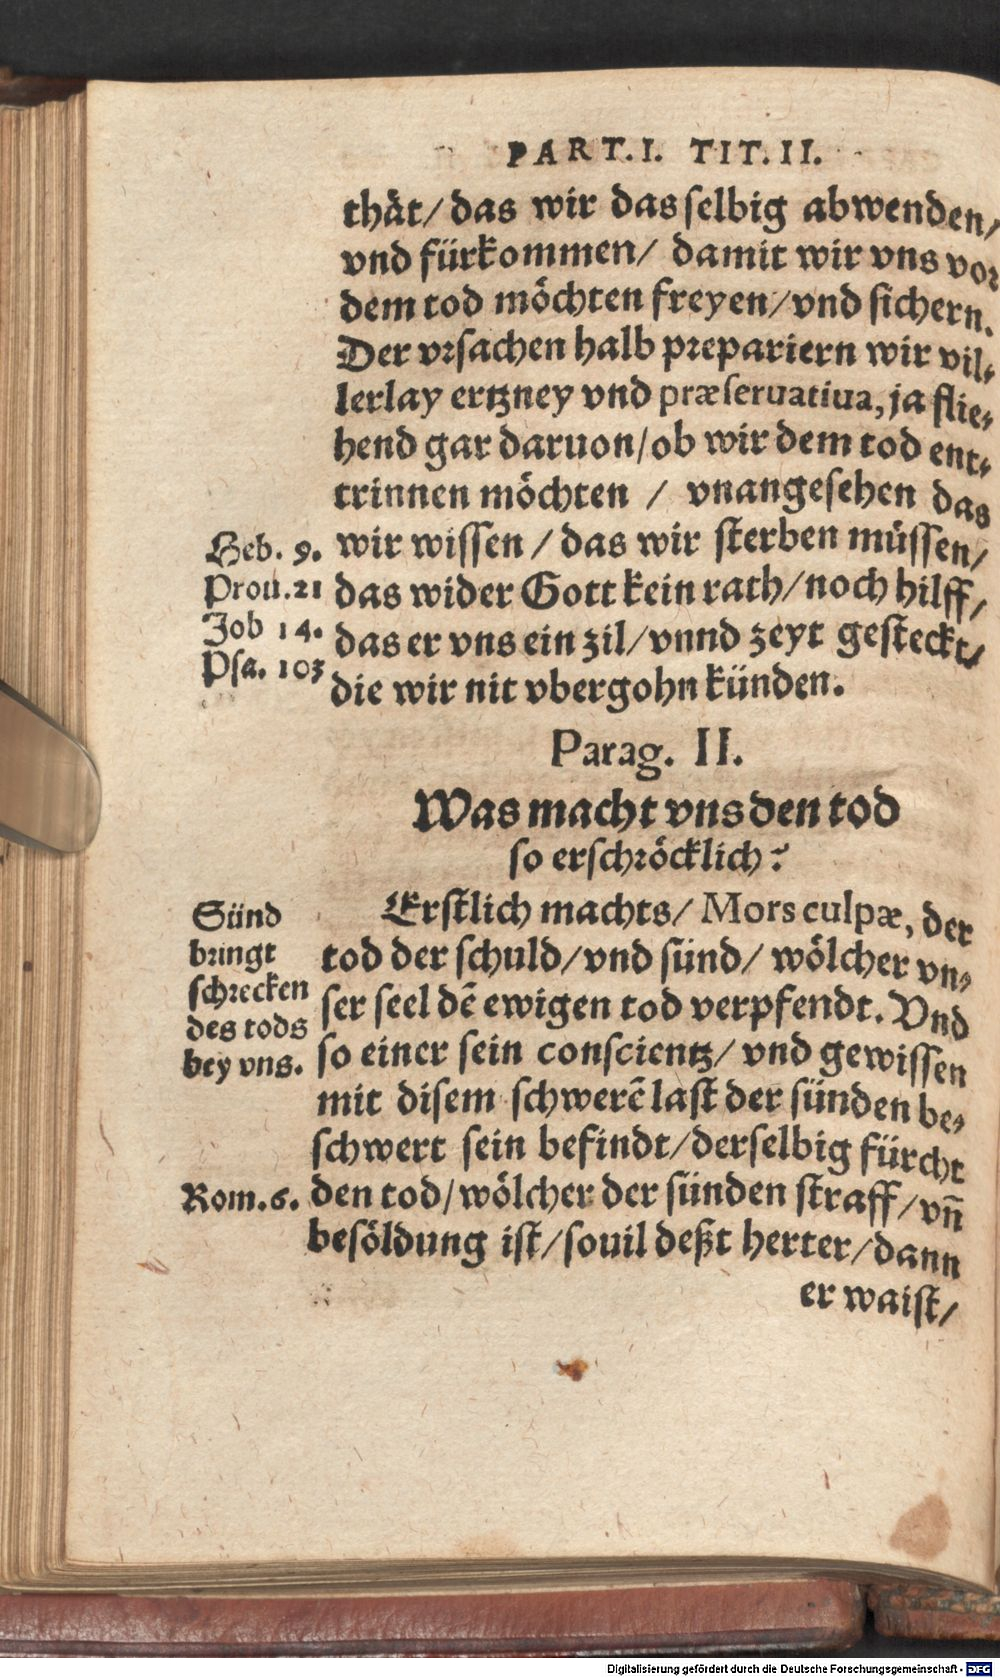 PART. I. TIT. II.
thät/ das wir das selbig abwenden/
vnd fürkommen/ damit wir vns vor
dem tod möchten freyen/ vnd sichern.
Der vrsachen halb prepariern wir vil-
lerlay ertzney vnd præseruatiua, ja flie-
hend gar daruon/ ob wir dem tod ent-
trinnen möchten / vnangesehen das
wir wissen / das wir sterben müssen/
das wider Gott kein rath/ noch hilff/
das er vns ein zil/ vnnd zeyt gesteckt/
die wir nit vbergohn künden.
Heb. 9.
Prou. 21
Job 14.
Psa. 103
Parag. II.
Was macht vns den tod
so erschröcklich?
Erstlich machts/ Mors culpæ, der
tod der schuld/ vnd sünd/ wölcher vn-
ser seel dē ewigen tod verpfendt. Vnd
so einer sein conscientz/ vnd gewissen
mit disem schwerē last der sünden be-
schwert sein befindt/ derselbig fürcht
den tod/ wölcher der sünden straff/ vñ
besöldung ist/ souil deßt herter/ dann
er waist/
Sünd
bringt
schrecken
des tods
bey vns.
Rom. 6.
Digitalisierung gefördert durch die Deutsche Forschungsgemeinschaft - DFG